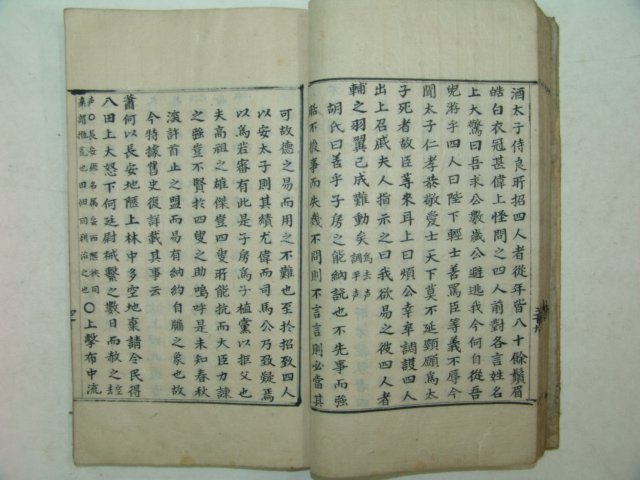 酒太子侍良所招四人者從年皆八十餘鬚眉
皓白衣冠甚偉上怪問之四人前對各言姓名
上大驚曰吾求公數歲公避逃我今何自從吾
兒游乎四人曰陛下輕士善罵臣等義不辱今
聞太子仁孝恭敬愛士天下莫不延頸願為太
子死者故臣等來耳上曰煩公幸卒調護四人
出上召戚夫人指示之曰我欲易之彼四人者
輔之羽翼已成難動矣為去声調平声
胡氏曰善乎子房之能納說也不先事而強
聒不後事而失幾不問則不言言則必當其
可故聽之易而用之不難也至於招致四人
以安太子則其績尤偉而司馬公乃致疑焉
以為若審有此是子房為子植黨以拒父也
夫高祖之雄傑豈四叟所能抗而大臣力諫
之強豈不賢於四叟之助嗚呼是未知春秋
深許首止之盟而易有納約自牖之象也故
今特據舊史復詳載其事云
蕭何以長安地陿上林中多空地棄請令民得
入田上大怒下何廷尉械繫之數日而赦之
〇上擊布中流